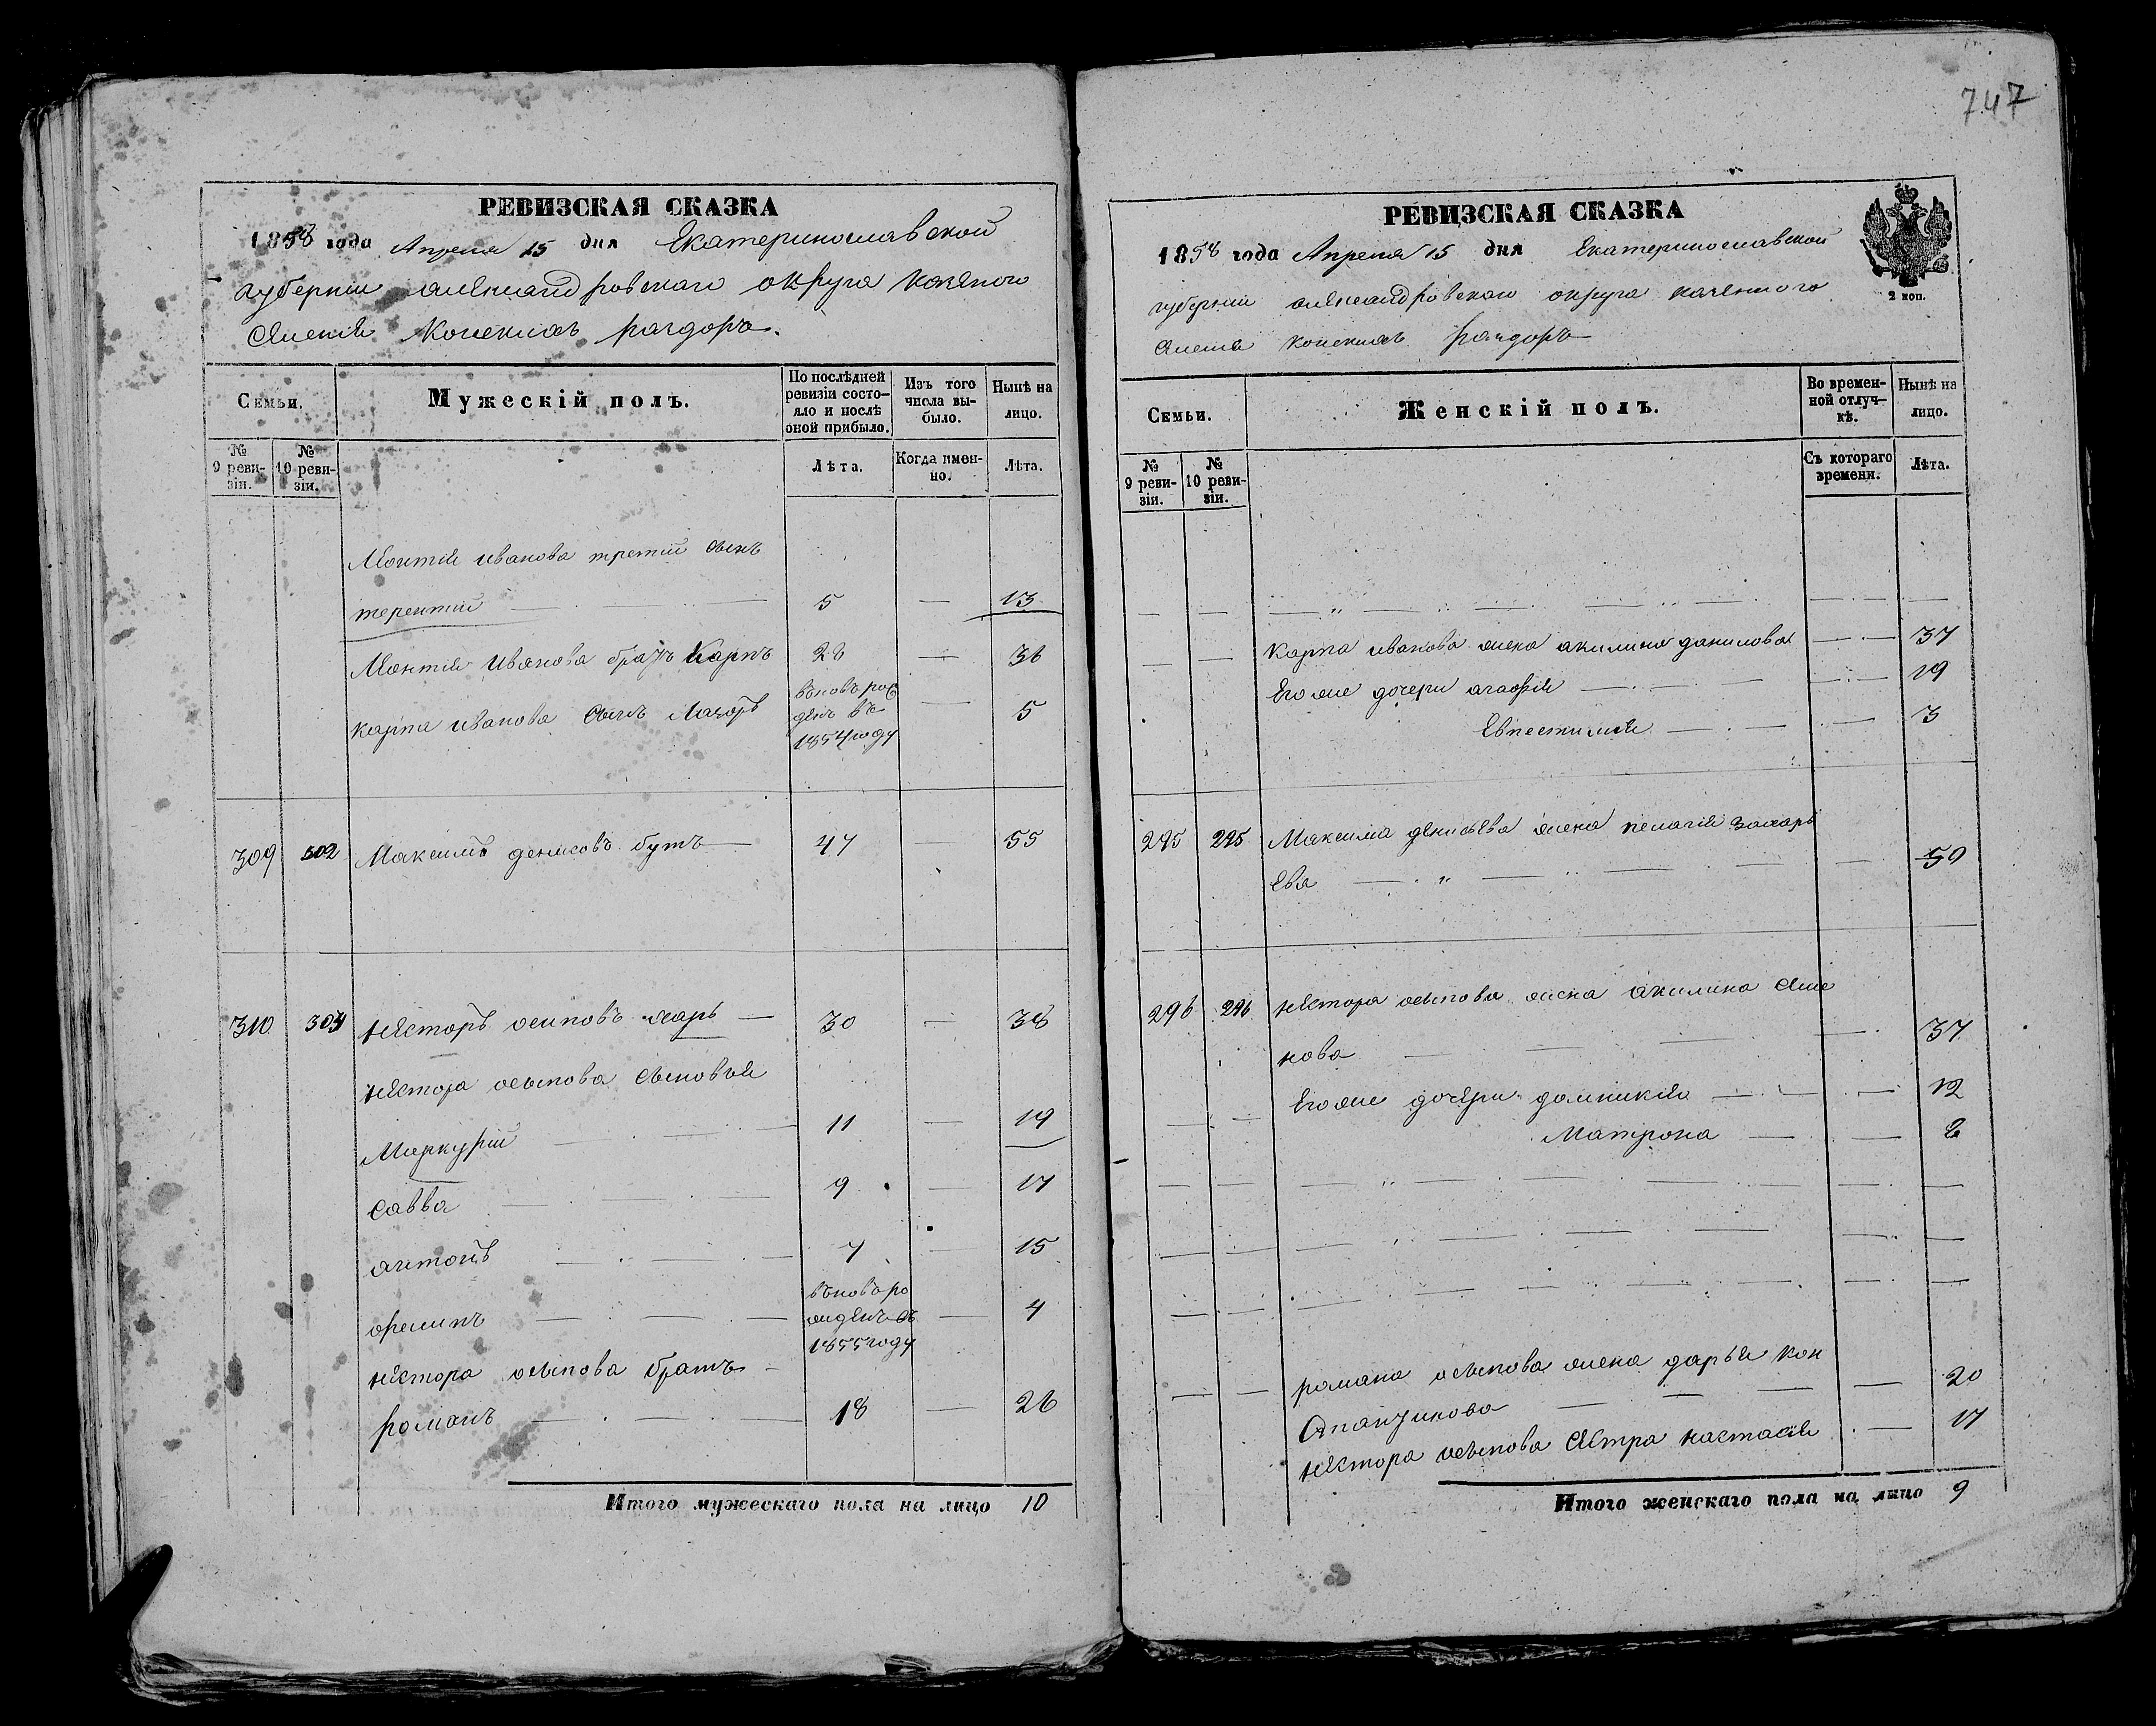 747
РЕВИЗСКАЯ СКАЗКА
1858 года Апреля 15 дня Екатеринославской
губернии александровскаго округа казеного
селения Конскихъ раздоръ.
Семьи.
Мужескій полъ.
По послѣдней ревизіи состояло и послѣ оной прибыло.
Изъ того числа выбыло.
Нынѣ на лицо.
№ 9 ревизіи.
№ 10 ревизіи.
Лѣта.
Когда именно.
Лѣта.
иванова третий сынъ
терентий 5 — 13
иванова братъ Карпъ 28 — 36
карпа иванова сынъ Назаръ вновь рожденъ въ 1854 году — 5
309 302 Максимъ денисовъ бутъ 47 — 55
310 303 нестеръ осиповъ 30 — 38
нестора осипова сыновья
Меркурий 11 — 19
савва 9 — 17
антонъ 7 — 15
вновь рожденъ въ 1855 году — 4
нестора осипова братъ
романъ 18 — 26
Итого мужескаго пола на лицо 10
РЕВИЗСКАЯ СКАЗКА
1858 года Апреля 15 дня Екатеринославской
губернии александровскаго округа казенного
селения конскихъ раздоръ
2 коп.
Семьи.
Женскій полъ.
Во временной отлучкѣ.
Нынѣ на лицо.
№ 9 ревизіи.
№ 10 ревизіи.
Съ котораго времени.
Лѣта.
карпа иванова жена акилина данилова — 37
Его же дочери агафия — 19
— 3
295 295 Максима денисьева жена пелагия захарь
ева — 50
296 296 нестора осипова жена акилина семе
нова — 37
Его же дочери домникия — 12
Матрона — 8
романа осипова жена дарья кон
20
нестора осипова сестра настасия — 17
Итого женскаго пола на лицо 9